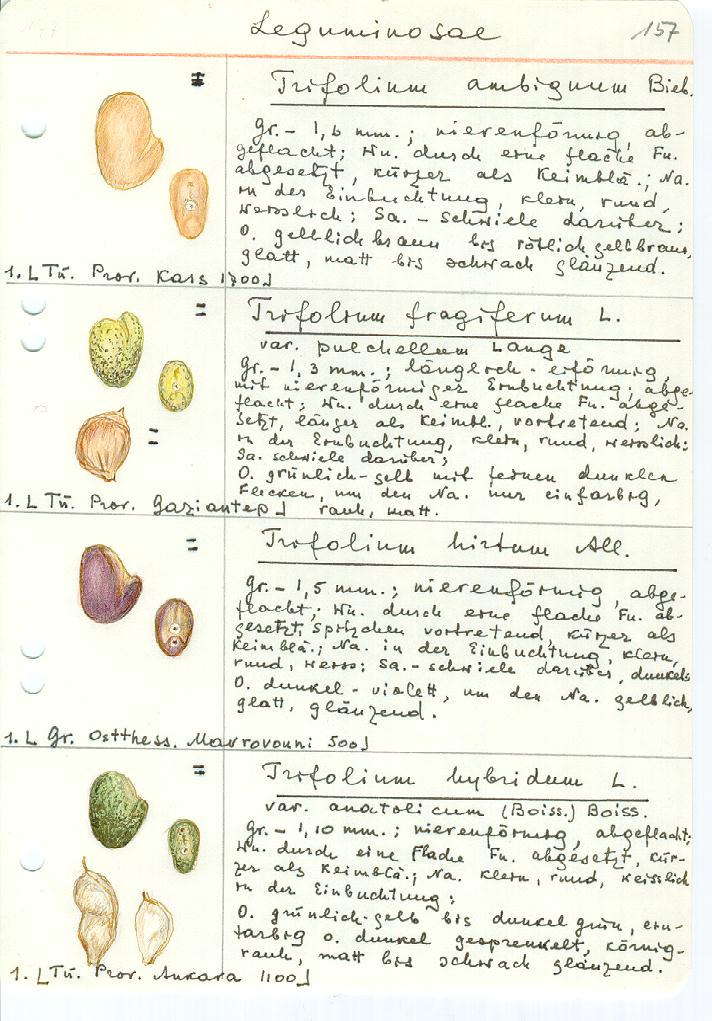 Leguminosae 157
Trifolium ambiguum Bieb.
Gr. - 1,6 mm.; nierenförmig, ab-
geflacht; Wu. durch eine flache Fu.
abgesetzt, kürzer als Keimblä.; Na.
in der Einbuchtung, klein, rund,
weisslich; Sa. - Schwiele darüber;
O. gelblichbraun bis rötlichgelbbraun,
glatt, matt bis schwach glänzend.
1. [Tü. Prov. Kars 1700]
Trifolium fragiferum L.
var. pulchellum Lange
Gr. - 1,3 mm.; länglich - eiförmig,
mit nierenförmiger Einbuchtung; abge-
flacht; Wu. durch eine flache Fu. abge-
setzt, länger als Keimbl., vortretend; Na.
in der Einbuchtung, klein, rund, weisslich;
Sa. schwiele darüber;
O. grünlich-gelb mit feinen dunklen
Flecken, um den Na. nur einfarbig,
rauh, matt.
1. [Tü. Prov. Gaziantep]
Trifolium hirtum All.
Gr. - 1,5 mm.; nierenförmig, abge-
flacht; Wu. durch eine flache Fu. ab-
gesetzt, Spitzchen vortretend, kürzer als
Keimblä.; Na. in der Einbuchtung, klein,
rund, weiss; Sa. - schwiele darüber, dunkel;
O. dunkel - violett, um den Na. gelblich,
glatt, glänzend.
1. [Gr. Ostthess. Mavrovouni 500]
Trifolium hybridum L.
var. anatolicum (Boiss.) Boiss.
Gr. - 1,10 mm.; nierenförmig, abgeflacht;
Wu. durch eine Flache Fu. abgesetzt, kür-
zer als Keimblä.; Na. klein, rund, weisslich
in der Einbuchtung;
O. grünlich-gelb bis dunkelgrün, ein-
farbig o. dunkel gesprenkelt, körnig-
rauh, matt bis schwach glänzend.
1. [Tü. Prov. Ankara 1100]